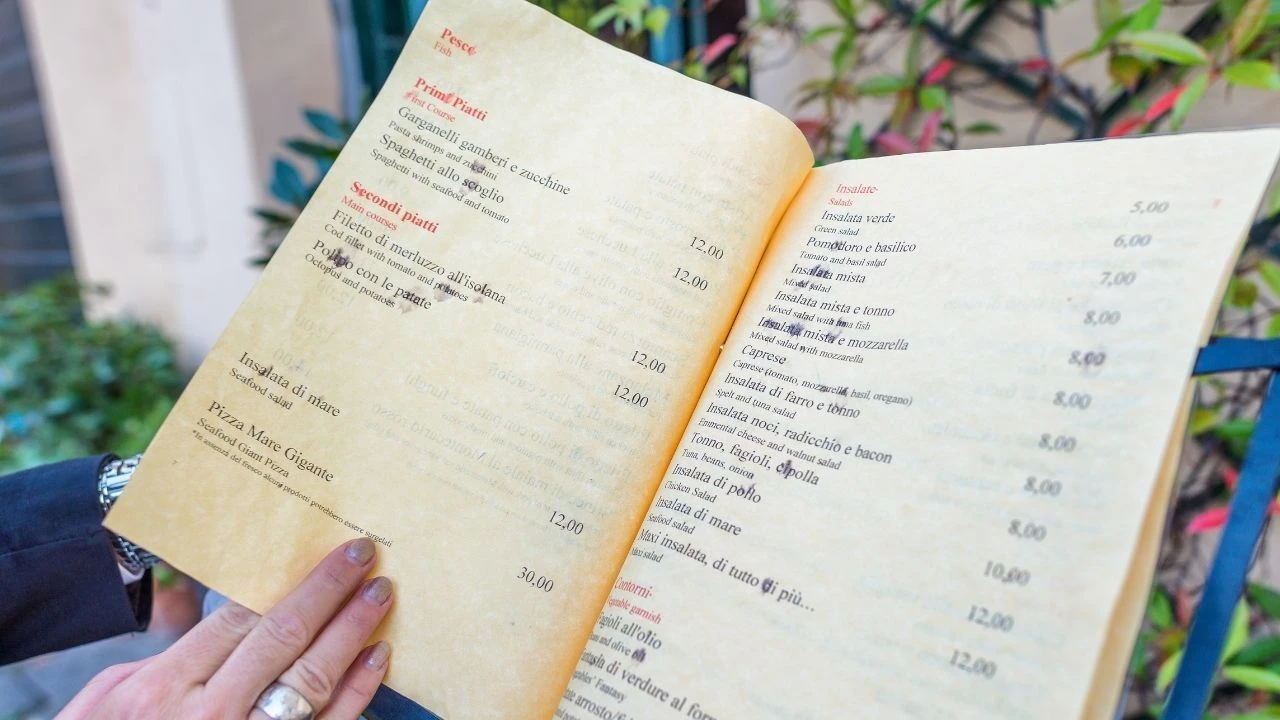 Pesce
Fish
Primi Piatti
First Course
Garganelli gamberi e zucchine
Pasta shrimps and zucchini
12,00
Spaghetti allo scoglio
Spaghetti with seafood and tomato
12,00
Secondi piatti
Main courses
Filetto di merluzzo all'isolana
Cod fillet with tomato and potatoes
12,00
Polipo con le patate
Octopus and potatoes
12,00
Insalata di mare
Seafood salad
12,00
Pizza Mare Gigante
Seafood Giant Pizza
30,00
*In assenza del fresco alcuni prodotti potrebbero essere surgelati
Insalate
Salads
Insalata verde
Green salad
5,00
Pomodoro e basilico
Tomato and basil salad
6,00
Insalata mista
Mixed salad
7,00
Insalata mista e tonno
Mixed salad with tuna fish
8,00
Insalata mista e mozzarella
Mixed salad with mozzarella
8,00
Caprese
Caprese (tomato, mozzarella, basil, oregano)
8,00
Insalata di farro e tonno
Spelt and tuna salad
8,00
Insalata noci, radicchio e bacon
Emmental cheese and walnut salad
8,00
Tonno, fagioli, cipolla
Tuna, beans, onion
8,00
Insalata di pollo
Chicken Salad
10,00
Insalata di mare
Seafood salad
12,00
Maxi insalata, di tutto di più...
Maxi salad
12,00
Contorni
garnish
all'olio
and olive oil
di verdure al
Fantasy
arrosto